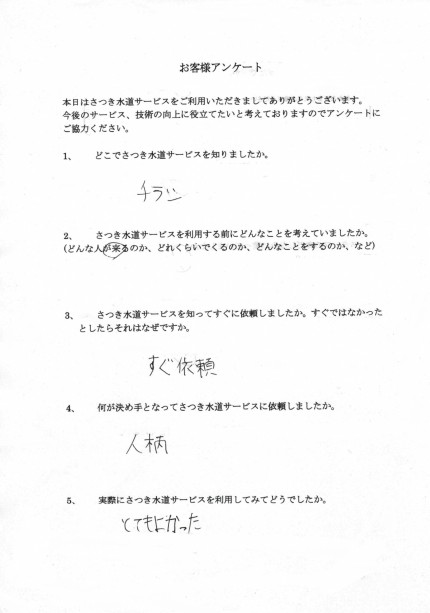 お客様アンケート
本日はさつき水道サービスをご利用いただきましてありがとうございます。
今後のサービス、技術の向上に役立てたいと考えておりますのでアンケートに
ご協力ください。
1、 どこでさつき水道サービスを知りましたか。
チラシ
2、 さつき水道サービスを利用する前にどんなことを考えていましたか。
(どんな人が来るのか、どれくらいでくるのか、どんなことをするのか、など)
3、 さつき水道サービスを知ってすぐに依頼しましたか。すぐではなかった
としたらそれはなぜですか。
すぐ依頼
4、 何が決め手となってさつき水道サービスに依頼しましたか。
人柄
5、 実際にさつき水道サービスを利用してみてどうでしたか。
とてもよかった